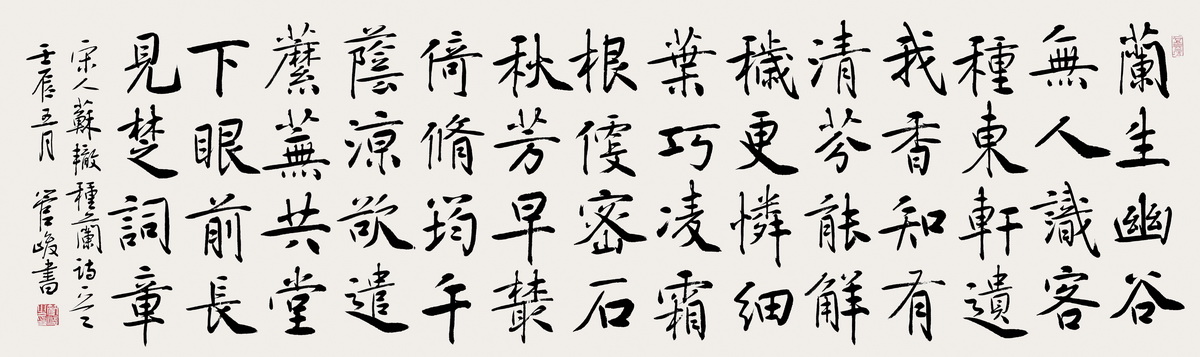 蘭生幽谷
無人識客
種東軒遺
我香知有
清芬能解
穢更憐細
葉巧凌霜
根便密石
秋芳早叢
倚脩筠午
蔭涼欲遣
蘼蕪共堂
下眼前長
見楚詞章
宋人蘇轍種蘭詩
壬辰五月 管峻書